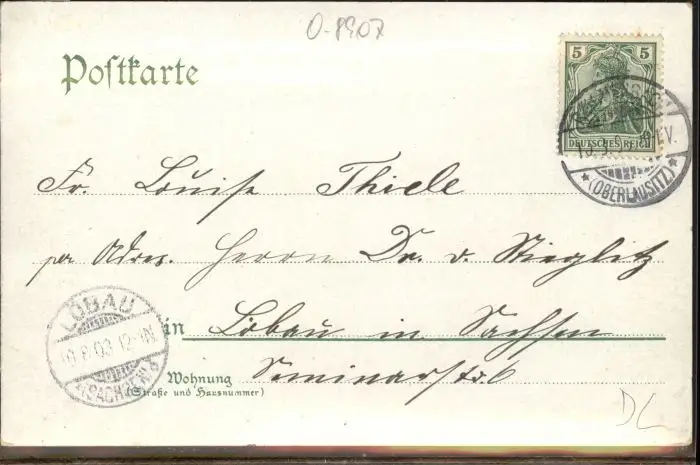 O-8907
Postkarte
5 5
DEUTSCHES REICH
(OBERLAUSITZ)
Fr. Louise Thiele
per Adres. Herrn Dr. v. Stieglitz
LÖBAU
12-1N
(SACHSEN)
in Löbau in Sachsen
Wohnung
(Straße und Hausnummer)
Seminarstr. 6
DL